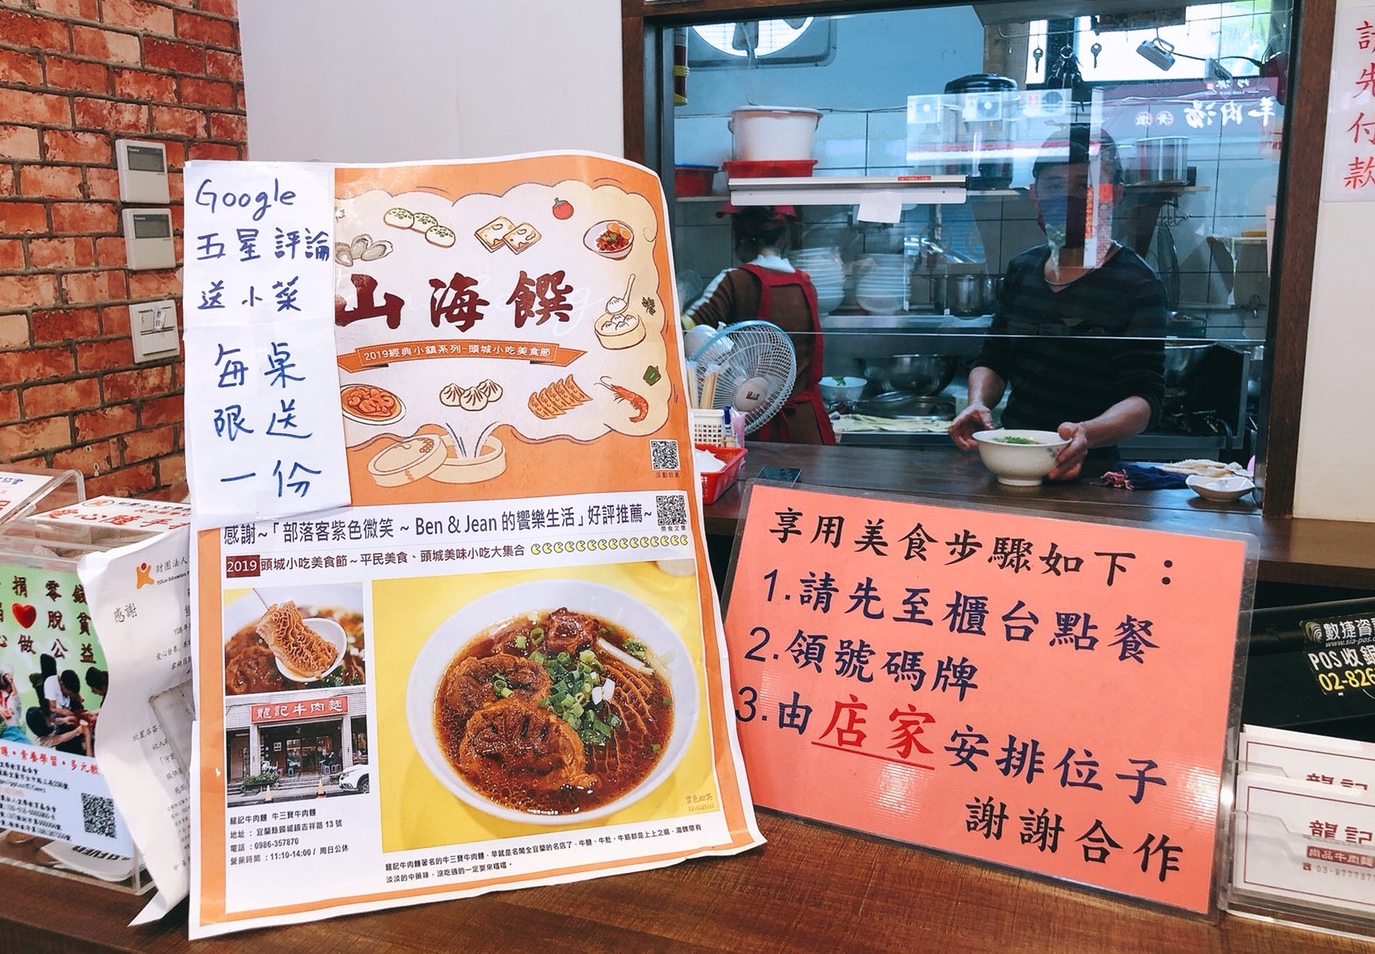 Google
五星評論
送小菜
每桌
限送
一份
山海饌
2019經典小鎮系列-頭城小吃美食節
感謝~「部落客紫色微笑 ~ Ben & Jean 的饗樂生活」好評推薦~
2019 頭城小吃美食節~平民美食、頭城美味小吃大集合
龍記牛肉麵
龍記牛肉麵 牛三寶牛肉麵
地址：宜蘭縣頭城鎮吉祥路 13 號
電話：0986-357870
營業時間：11:10-14:00 / 周日公休
龍記牛肉麵著名的牛三寶牛肉麵，早就是名聞全宜蘭的名店了，牛腱、牛肚、牛筋都是上上之選，湯頭帶有
淡淡的中藥味，沒吃過的一定要來嚐嚐。
享用美食步驟如下：
1.請先至櫃台點餐
2.領號碼牌
3.由店家安排位子
謝謝合作
請先付款
羊肉湯
感謝
捐零錢
脫貧
做公益
數捷資
POS收銀
02-826
龍記
龍記
尚品牛肉麵